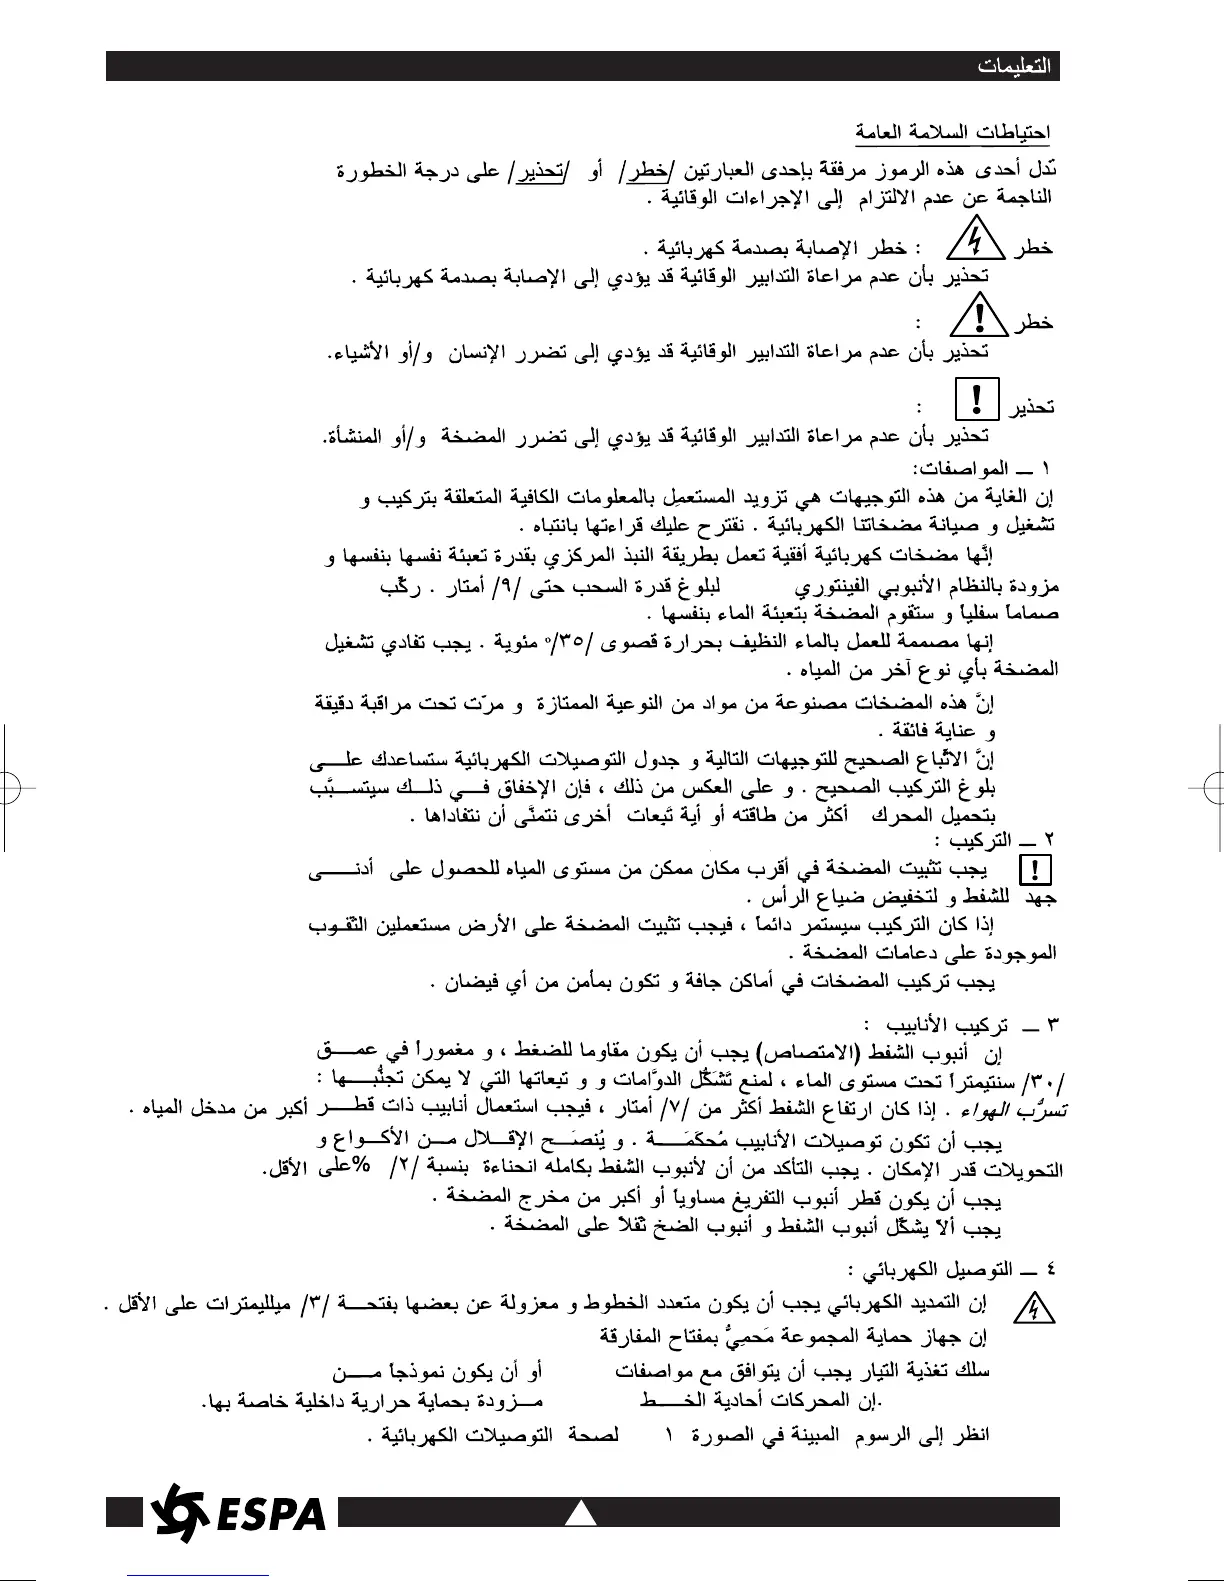 التعليمات
احتياطات السلامة العامة
تدل أحدى هذه الرموز مرفقة بإحدى العبارتين /خطر/ أو /تحذير/ على درجة الخطورة
الناجمة عن عدم الالتزام إلى الإجراءات الوقائية .
خطر : خطر الإصابة بصدمة كهربائية .
تحذير بأن عدم مراعاة التدابير الوقائية قد يؤدي إلى الإصابة بصدمة كهربائية .
خطر :
تحذير بأن عدم مراعاة التدابير الوقائية قد يؤدي إلى تضرر الإنسان و/أو الأشياء.
تحذير :
تحذير بأن عدم مراعاة التدابير الوقائية قد يؤدي إلى تضرر المضخة و/أو المنشأة.
١ ــ المواصفات:
إن الغاية من هذه التوجيهات هي تزويد المستعمِل بالمعلومات الكافية المتعلقة بتركيب و
تشغيل و صيانة مضخاتنا الكهربائية . نقترح عليك قراءتها بانتباه .
إنَّها مضخات كهربائية أفقية تعمل بطريقة النبذ المركزي بقدرة تعبئة نفسها بنفسها و
مزودة بالنظام الأنبوبي الفينتوري لبلوغ قدرة السحب حتى /٩/ أمتار . ركِّب
صماماً سفلياً و ستقوم المضخة بتعبئة الماء بنفسها .
إنها مصممة للعمل بالماء النظيف بحرارة قصوى /٣٥/° مئوية . يجب تفادي تشغيل
المضخة بأي نوع آخر من المياه .
إنَّ هذه المضخات مصنوعة من مواد من النوعية الممتازة و مرّت تحت مراقبة دقيقة
و عناية فائقة .
إنَّ الاتّباع الصحيح للتوجيهات التالية و جدول التوصيلات الكهربائية ستساعدك علـــى
بلوغ التركيب الصحيح . و على العكس من ذلك ، فإن الإخفاق فـــي ذلـــك سيتســـبَّب
بتحميل المحرك أكثر من طاقته أو أية تَبعات أخرى نتمنَّى أن نتفاداها .
٢ ــ التركيب :
! يجب تثبيت المضخة في أقرب مكان ممكن من مستوى المياه للحصول على أدنـــــى
جهد للشفط و لتخفيض ضياع الرأس .
إذا كان التركيب سيستمر دائماً ، فيجب تثبيت المضخة على الأرض مستعملين الثقــوب
الموجودة على دعامات المضخة .
يجب تركيب المضخات في أماكن جافة و تكون بمأمن من أي فيضان .
٣ ــ تركيب الأنابيب :
إن أنبوب الشفط (الامتصاص) يجب أن يكون مقاوما للضغط ، و مغموراً في عمـــق
/٣٠/ سنتيمتراً تحت مستوى الماء ، لمنع تَشَكُّل الدوَّامات و و تبعاتها التي لا يمكن تجنُّبـــها :
تسرُّب الهواء . إذا كان ارتفاع الشفط أكثر من /٧/ أمتار ، فيجب استعمال أنابيب ذات قطـــر أكبر من مدخل المياه .
يجب أن تكون توصيلات الأنابيب مُحكَمَــــة . و يُنصَـــح الإقــلال مـــن الأكـــواع و
التحويلات قدر الإمكان . يجب التأكد من أن لأنبوب الشفط بكامله انحناءة بنسبة /٢/ %على الأقل.
يجب أن يكون قطر أنبوب التفريغ مساوياً أو أكبر من مخرج المضخة .
يجب ألاّ يشكِّل أنبوب الشفط و أنبوب الضخ ثقلاً على المضخة .
٤ ــ التوصيل الكهربائي :
إن التمديد الكهربائي يجب أن يكون متعدد الخطوط و معزولة عن بعضها بفتحـــة /٣/ ميلليمترات على الأقل .
إن جهاز حماية المجموعة مَحمِيُّ بمفتاح المفارقة
سلك تغذية التيار يجب أن يتوافق مع مواصفات أو أن يكون نموذجاً مـــن
.إن المحركات أحادية الخـــط مـــزودة بحماية حرارية داخلية خاصة بها.
انظر إلى الرسوم المبينة في الصورة ١ لصحة التوصيلات الكهربائية .
ESPA